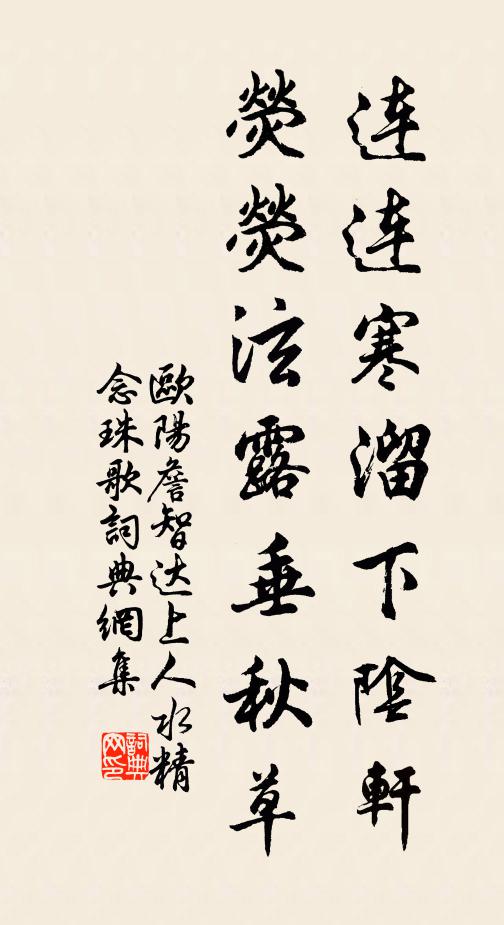 连连寒溜下陰軒
熒熒泫露垂秋草
歐陽詹智达上人水精
念珠歌詞典網集
詞典网印